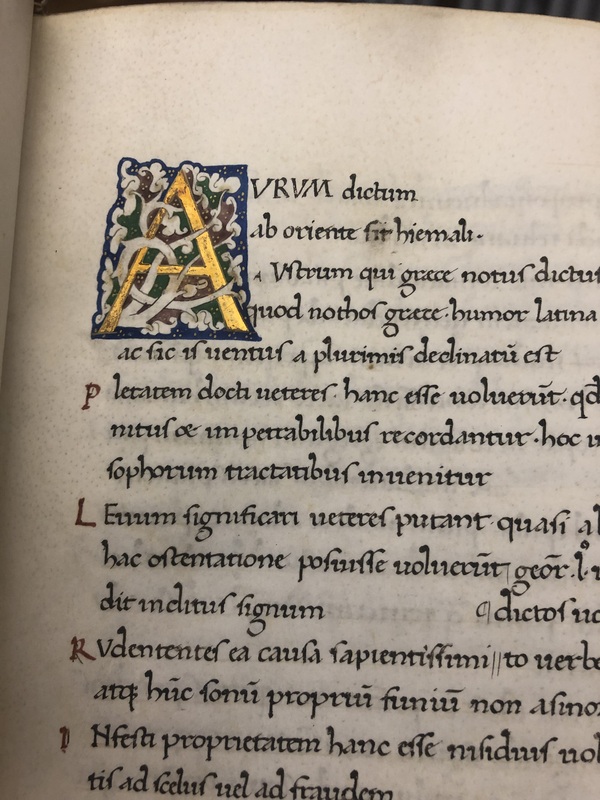 AVRVM dictum
ab oriente sit hiemali.
AVstrum qui græce notus dictus
quod nothos græce. humor latina
ac sic is uentus a plurimis declinatū est
Pletatem docti ueteres. hanc esse uoluerūt. qđ
nitus œ impetrabilibus recordantur. hoc
sophorum tractatibus inuenitur
LEuum significari ueteres putant quasi
hac ostentatione posuisse uoluerūt geōr. l.
dit inclitus signum ¶ dictos
RVdententes ea causa sapientissimi||to uerbo
atqꝫ hūc sonū propriū funiū non asino
INfesti proprietatem hanc esse nisidius
tis ad scelus uel ad fraudem